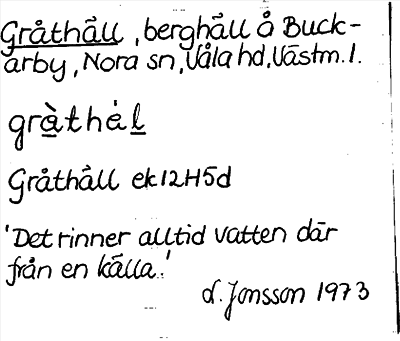 Gråthäll, berghäll å Buck-
arby, Nora sn, Våla hd, Västm. l.
gràthȧl
Gråthäll ek 12H5d
'Det rinner alltid vatten där
från en källa.'
L. Jonsson 1973